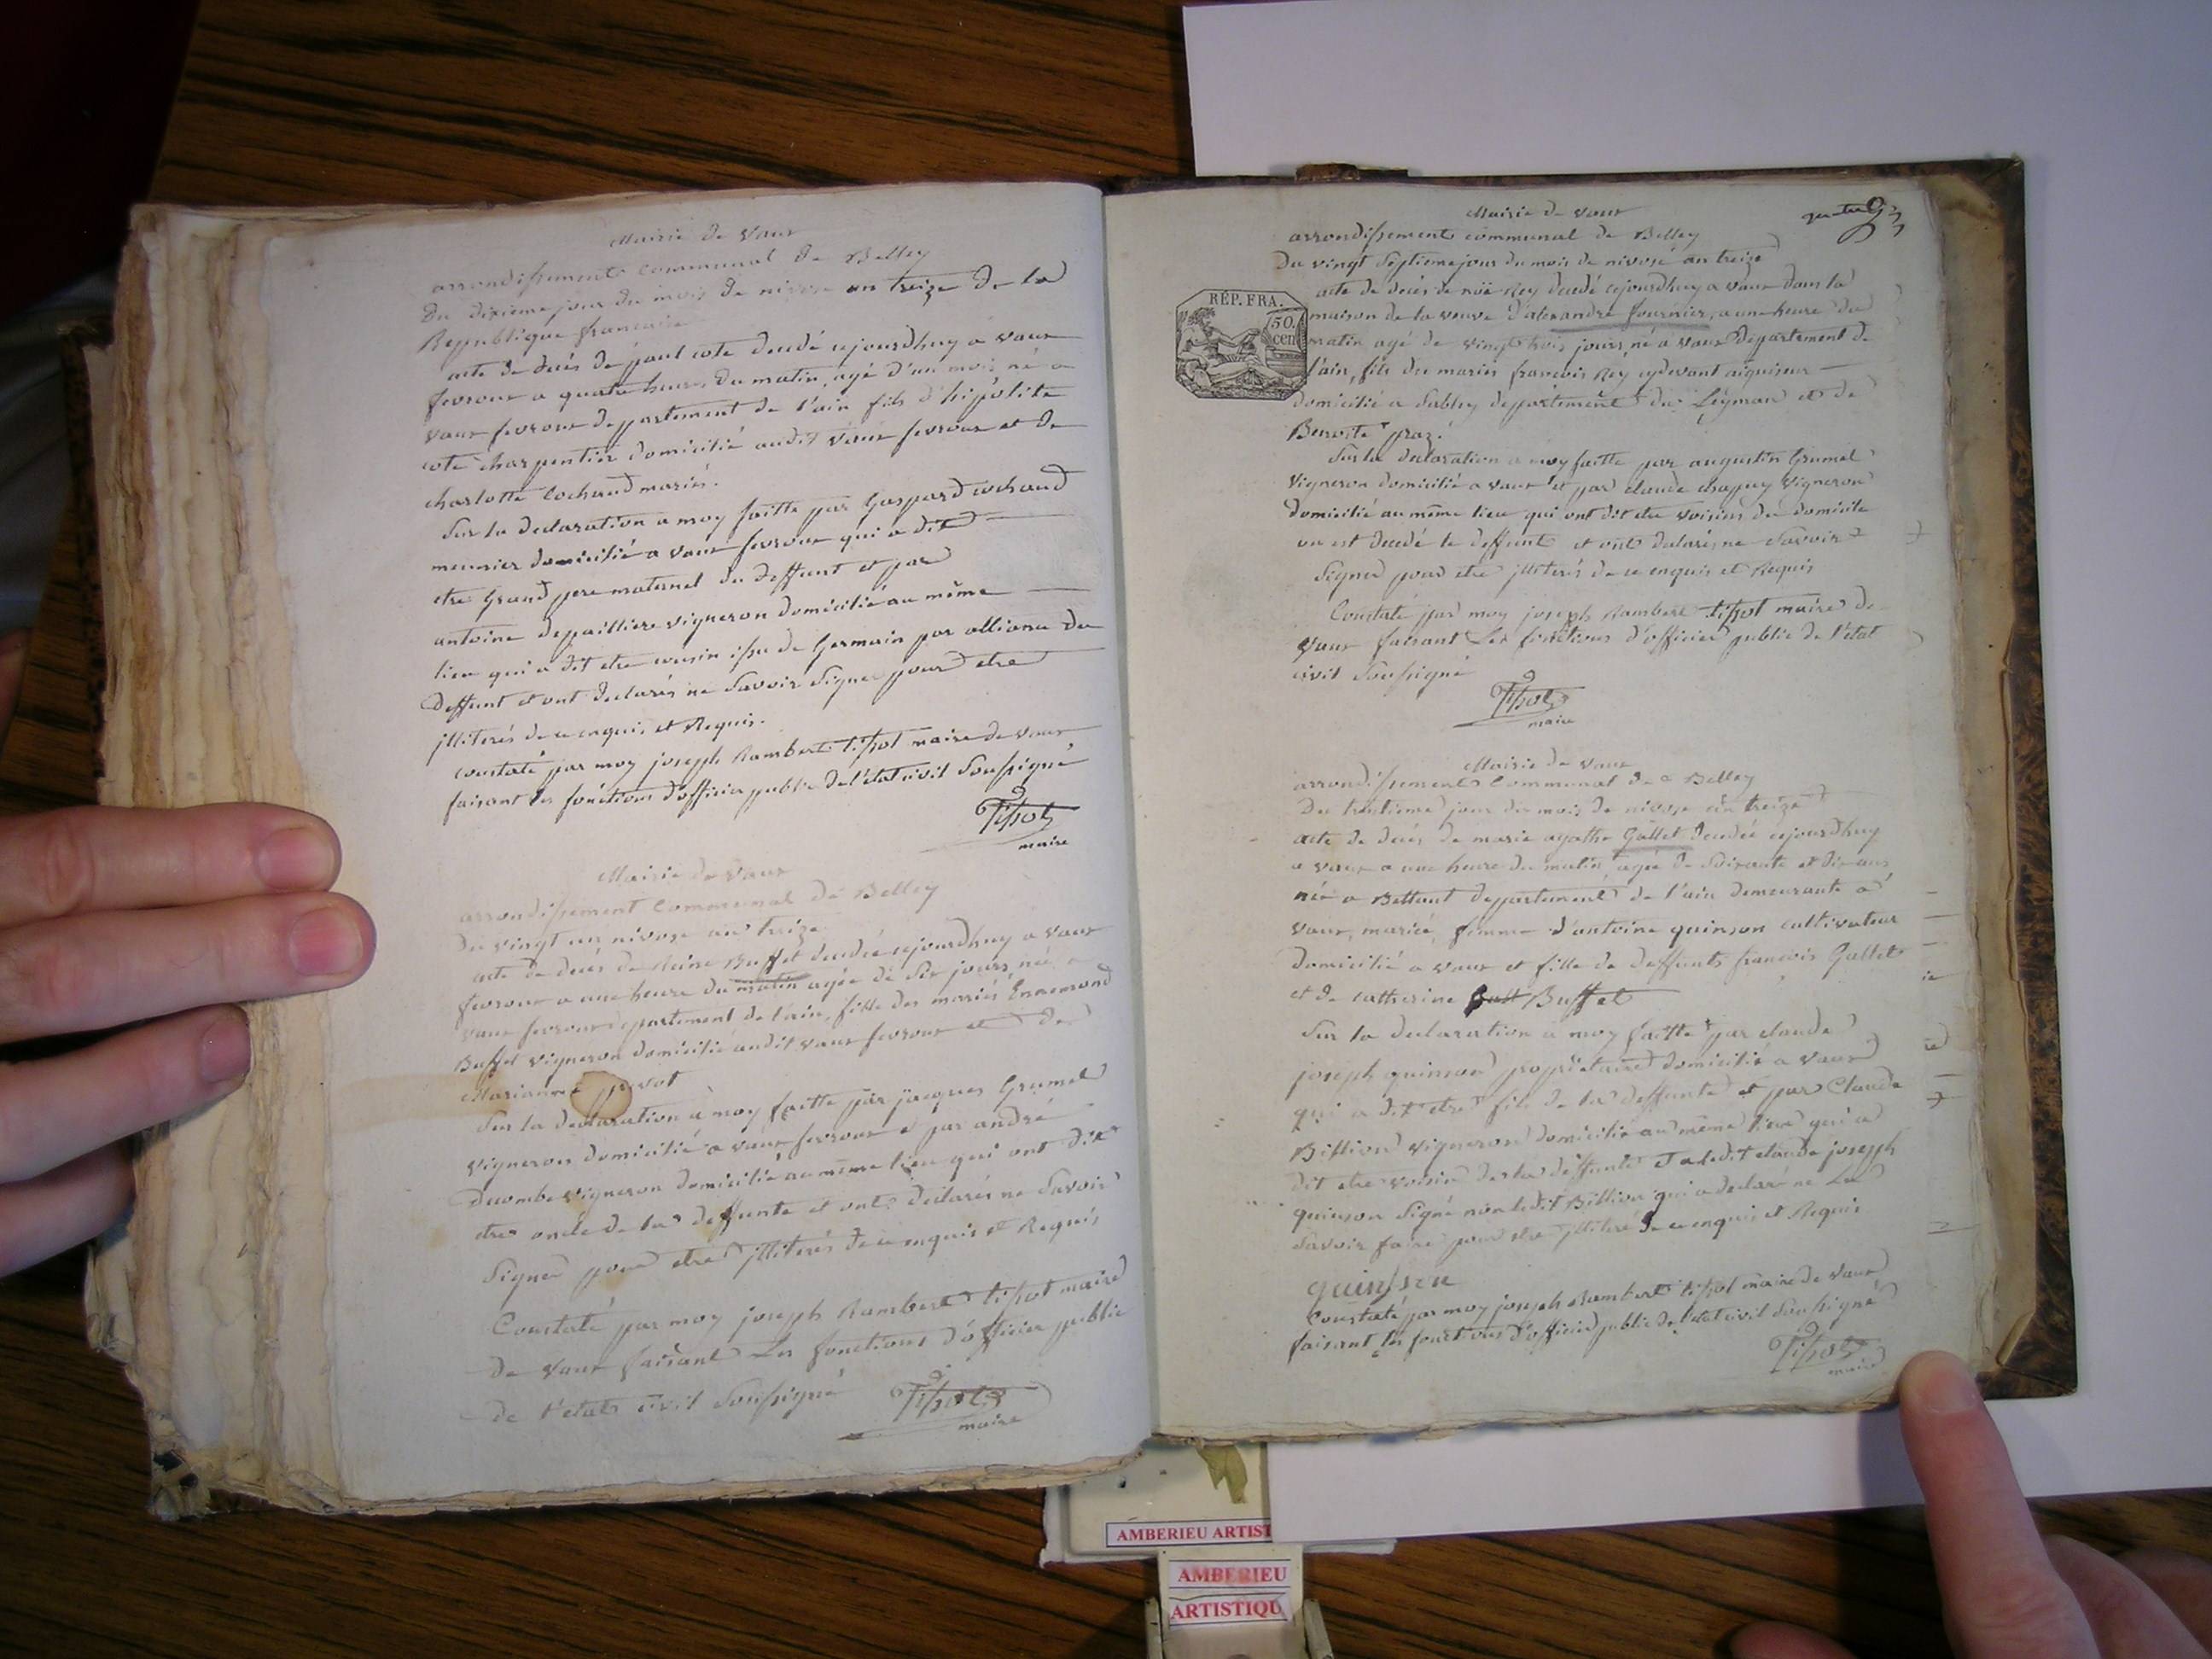 Mairie de Vaux
arrondissement communal de Belley
Du dixieme jour du mois de nivose an treize de la
Republique francaise
acte de decés de paul cote decedé cejourdhuy a vaux
fevroux a quatre heures du matin, agé d'un mois, né a
vaux fevroux departement de l'ain fils d'hipolite
cote charpentier domicilié audit vaux fevroux et de
charlotte Cochaud mariés.
Sur la declaration a moy faitte par Gaspard cochaud
meunier domicilié a vaux fevroux qui a dit
etre Grand pere maternel du deffunt et par
antoine depailliere vigneron domicilié au même
lieu qui a dit etre cousin issu de Germain par alliance du
deffunt et ont declarés ne Savoir Signer pour etre
jlliterés de ce enquis et Requis.
Constaté par moy joseph Rambert tissot maire de vaux
faisant les fonctions d'officier public de l'etat civil Soussigné
Tissot
maire
Mairie de Vaux
arrondissement Communal de Belley
Du vingt un nivose an treize
acte de decés de Reine Buffet decedée cejourdhuy a vaux
fevroux a une heure du matin agée de Six jours, née a
vaux fevroux departement de l'ain, fille des mariés Ennemond
Buffet vigneron domicilié audit vaux fevroux et de
Marianne pivot
Sur la declaration a moy faitte par jacques Grumel
vigneron domicilié a vaux fevroux et par andré
Ducombe vigneron domicilié au même lieu qui ont dit
etre oncle de la deffunte et ont declarés ne Savoir
Signer pour etre jlliterés de ce enquis et Requis
Constaté par moy joseph Rambert tissot maire
de vaux faisant Les fonctions d'officier public
de l'etat civil Soussigné
Tissot
maire
Mairie de vaux
arrondissement communal de Belley
Du vingt Septieme jour du mois de nivose an treize
acte de decés de noë Rey decedé cejourdhuy a vaux dans la
maison de la veuve d'alexandre fournier, a une heure du
matin agé de vingt trois jours, né a vaux Departement de
l'ain, fils des mariés francois Rey cydevant aiguiseur
domicilié a Sablry departement du Leyman et de
Benoite praz.
Sur la declaration a moy faitte par augustin Grumel
Vigneron domicilié a vaux et par claude chapuy Vigneron
domicilié au même lieu qui ont dit etre voisins du domicile
ou est decedé le deffunt et ont declarés ne Savoir
Signer pour etre jlliterés de ce enquis et Requis
Constaté par moy joseph Rambert tissot maire de
Vaux faisant Les fonctions d'officier public de l'etat
civil Soussigné
Tissot
maire
RÉP. FRA.
50.
cen
Mairie de Vaux
arrondissement Communal de Belley
Du trentieme jour du mois de nivose an treize
acte de decés de marie agathe Gallet decedée cejourdhuy
a vaux a une heure du matin, agée de Soixante et dix ans
née a Bettant departement de l'ain demeurante a
vaux, mariée, femme d'antoine quinson cultivateur
domicilié a vaux et fille de deffunts francois Gallet
et de catherine Buffet
Sur la declaration a moy faitte par claude
joseph quinson propriétaire domicilié a vaux
qui a dit etre fils de la deffunte et par Claude
Billion vigneron domicilié au même lieu qui a
dit etre voisin de la deffunte et a ledit claude joseph
quinson Signé non ledit Billion qui a declaré ne Le
Savoir faire pour etre jlliteré de ce enquis et Requis
quinsson
Constaté par moy joseph Rambert tissot maire de vaux
faisant les fonctions d'officier public de l'etat civil Soussigné
Tissot
maire
AMBERIEU ARTIST
AMBERIEU
ARTISTIQU